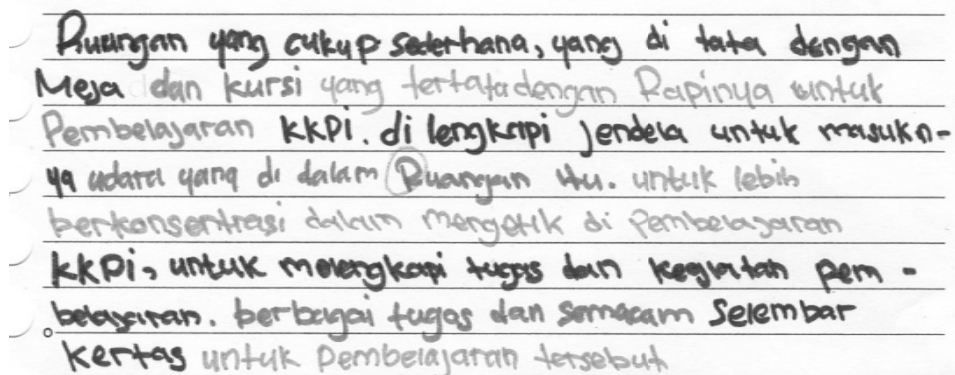 Ruangan yang cukup sederhana, yang di tata dengan
Meja dan kursi yang tertata dengan Rapinya untuk
Pembelajaran KKPi. di lengkapi jendela untuk masukn-
ya udara yang di dalam Ruangan itu. untuk lebih
berkonsentrasi dalam mengetik di Pembelajaran
KKPi, untuk melengkapi tugas dan kegiatan pem-
belajaran. berbagai tugas dan semacam Selembar
Kertas untuk Pembelajaran tersebut